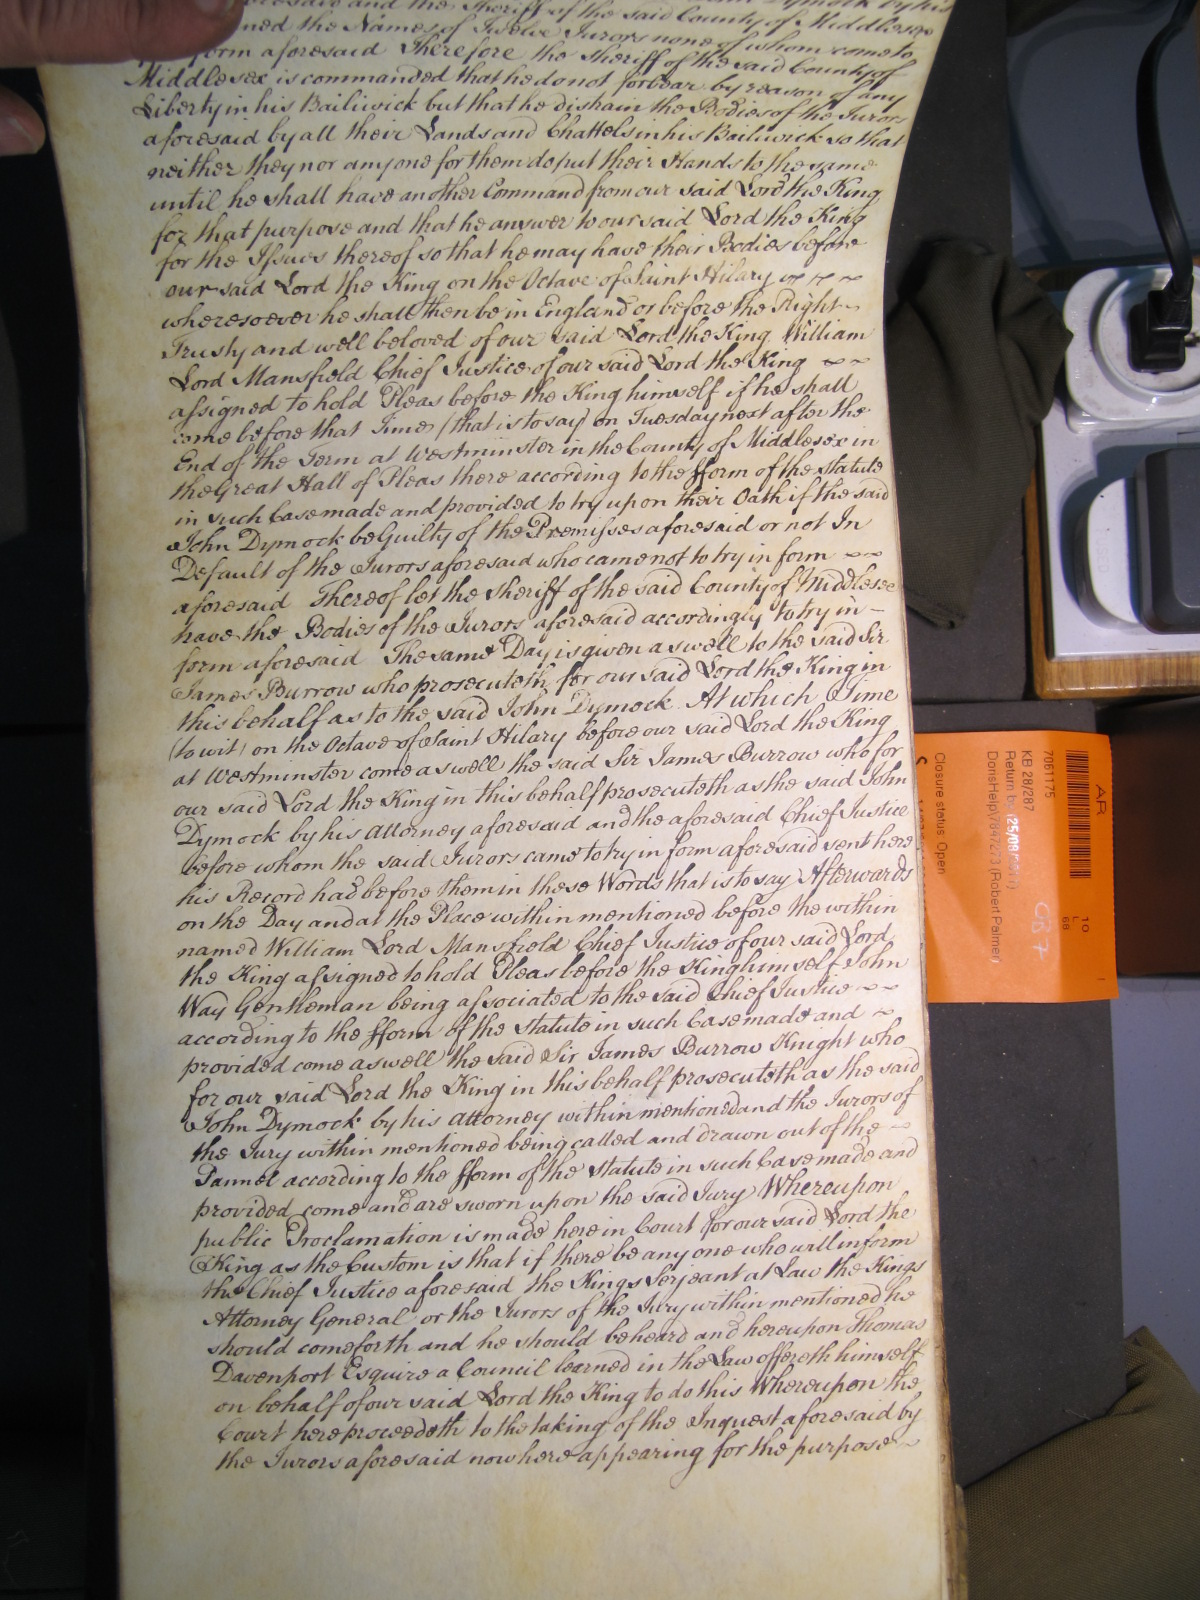 aforesaid and the Sheriff of the said County of Middlesex
ned the Names of Twelve Jurors none of whom come to
form aforesaid Therefore the Sheriff of the said County of
Middlesex is commanded that he do not forbear by reason of any
Liberty in his Bailiwick but that he distrain the Bodies of the Jurors
aforesaid by all their Lands and Chattels in his Bailiwick so that
neither they nor any one for them do put their Hands to the same
until he shall have another Command from our said Lord the King
for that purpose and that he answer to our said Lord the King
for the Issues thereof so that he may have their Bodies before
our said Lord the King on the Octave of Saint Hilary
wheresoever he shall then be in England or before the Right
Trusty and well beloved of our said Lord the King William
Lord Mansfield Chief Justice of our said Lord the King
assigned to hold Pleas before the King himself if he shall
come before that Time (that is to say) on Tuesday next after the
End of the Term at Westminster in the County of Middlesex in
the Great Hall of Pleas there according to the fform of the Statute
in such Case made and provided to try upon their Oath if the said
John Dymock be Guilty of the Premisses aforesaid or not In
Default of the Jurors aforesaid who came not to try in form
aforesaid Thereof let the Sheriff of the said County of Middlesex
have the Bodies of the Jurors aforesaid accordingly to try in
form aforesaid The same Day is given as well to the said Sir
James Burrow who prosecuteth for our said Lord the King in
this behalf as to the said John Dymock At which Time
(to wit) on the Octave of Saint Hilary before our said Lord the King
at Westminster come as well the said Sir James Burrow who for
our said Lord the King in this behalf prosecuteth as the said John
Dymock by his attorney aforesaid and the aforesaid Chief Justice
before whom the said Jurors came to try in form aforesaid sent here
his Record had before them in these Words that is to say Afterwards
on the Day and at the Place within mentioned before the within
named William Lord Mansfield Chief Justice of our said Lord
the King assigned to hold Pleas before the King himself John
Way Gentleman being associated to the said Chief Justice
according to the fform of the Statute in such Case made and
provided come as well the said Sir James Burrow Knight who
for our said Lord the King in this behalf prosecuteth as the said
John Dymock by his attorney within mentioned and the Jurors of
the Jury within mentioned being called and drawn out of the
Pannel according to the fform of the Statute in such Case made and
provided come and are sworn upon the said Jury Whereupon
public Proclamation is made here in Court for our said Lord the
King as the Custom is that if there be any one who will inform
the Chief Justice aforesaid the Kings Serjeant at Law the Kings
Attorney General or the Jurors of the Jury within mentioned he
should come forth and he should be heard and hereupon Thomas
Davenport Esquire a Council learned in the Law offereth himself
on behalf of our said Lord the King to do this Whereupon the
Court here proceedeth to the taking of the Inquest aforesaid by
the Jurors aforesaid now here appearing for the purpose
AR
7061175
KB 28/287
Closure status: Open